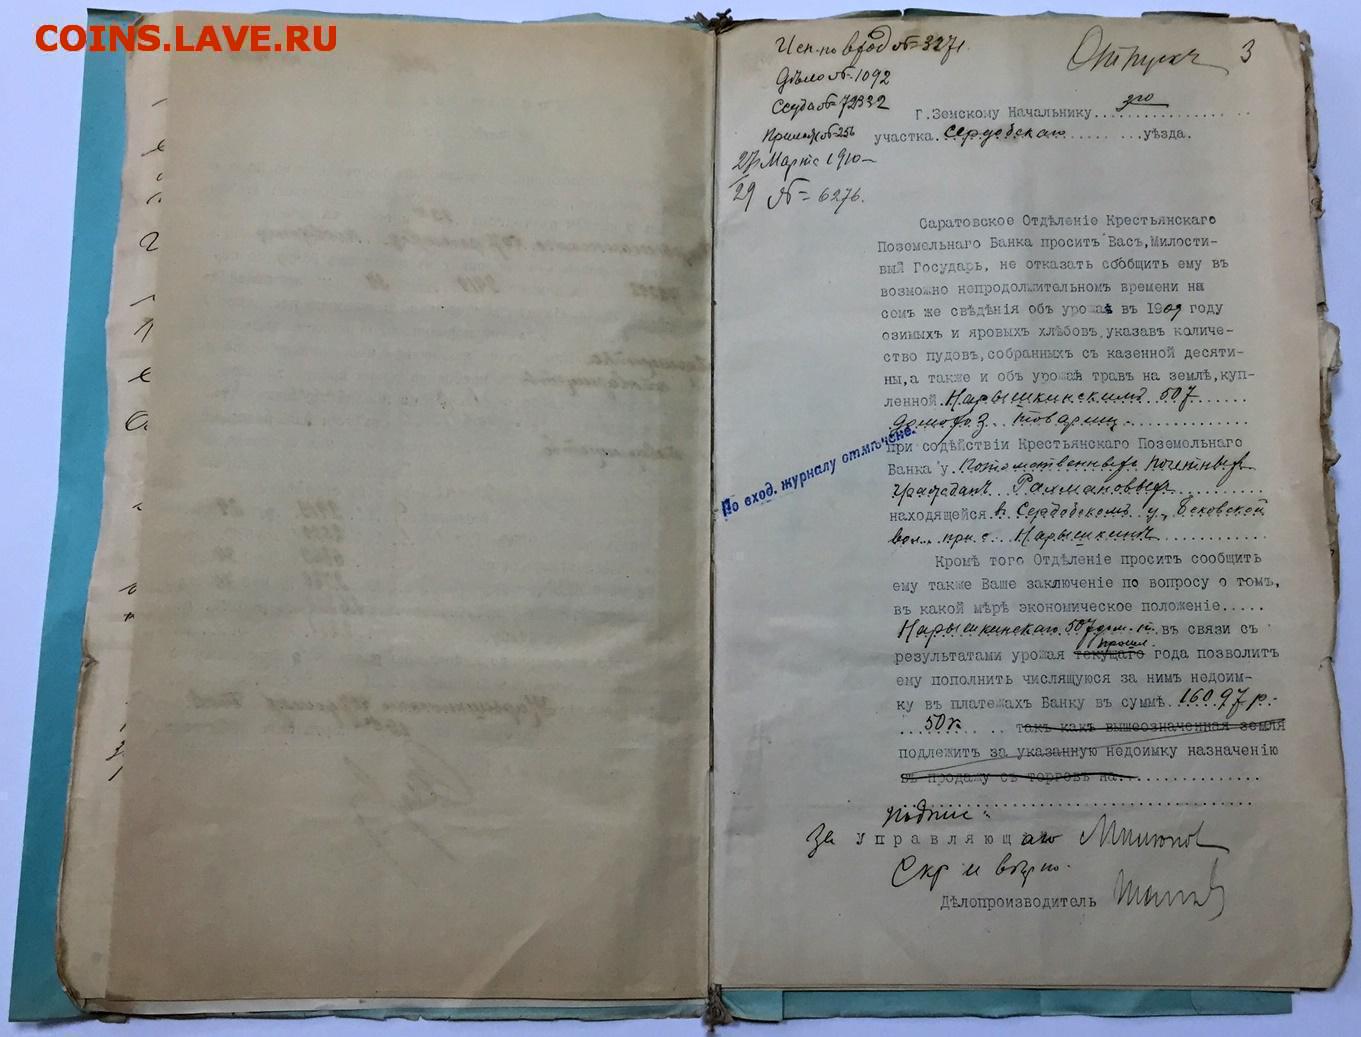 COINS.LAVE.RU
Исп. по вход № 3271.
Отпускъ 3
Дѣло № 1092
Ссуда № 72332
Г. Земскому Начальнику 3го
№ 256
участка Сердобскаго уѣзда.
27 Марта 1910
29 № 6276.
Саратовское Отдѣленіе Крестьянскаго
Поземельнаго Банка проситъ Васъ, Милости-
вый Государь, не отказать сообщить ему въ
возможно непродолжительном времени на
семъ же свѣдѣнія объ урожаѣ въ 1909 году
озимыхъ и яровыхъ хлѣбовъ, указавъ количе-
ство пудовъ, собранныхъ съ казенной десяти-
ны, а также и объ урожаѣ травъ на землѣ, куп-
ленной Нарышкинскимъ 507
домохоз. товарищ.
при содѣйствіи Крестьянскаго Поземельнаго
По вход. журналу отмѣчено.
Банка у Потомственныхъ почетныхъ
гражданъ Рахмановыхъ
находящейся въ Сердобскомъ у., Бековской
вол. при с. Нарышкинѣ
Кромѣ того Отдѣленіе проситъ сообщить
ему также Ваше заключеніе по вопросу о томъ,
въ какой мѣрѣ экономическое положеніе.....
Нарышкинскаго 507 дом. т. въ связи съ
прошл.
результатами урожая текущаго года позволитъ
ему пополнить числящуюся за нимъ недоим-
ку въ платежахъ Банку въ суммѣ 16097 р.
50 к такъ какъ вышеозначенная земля
подлежитъ за указанную недоимку назначенію
въ продажу съ торговъ на
подпис:
За управляющаго
Скр и вѣрно.
Дѣлопроизводитель